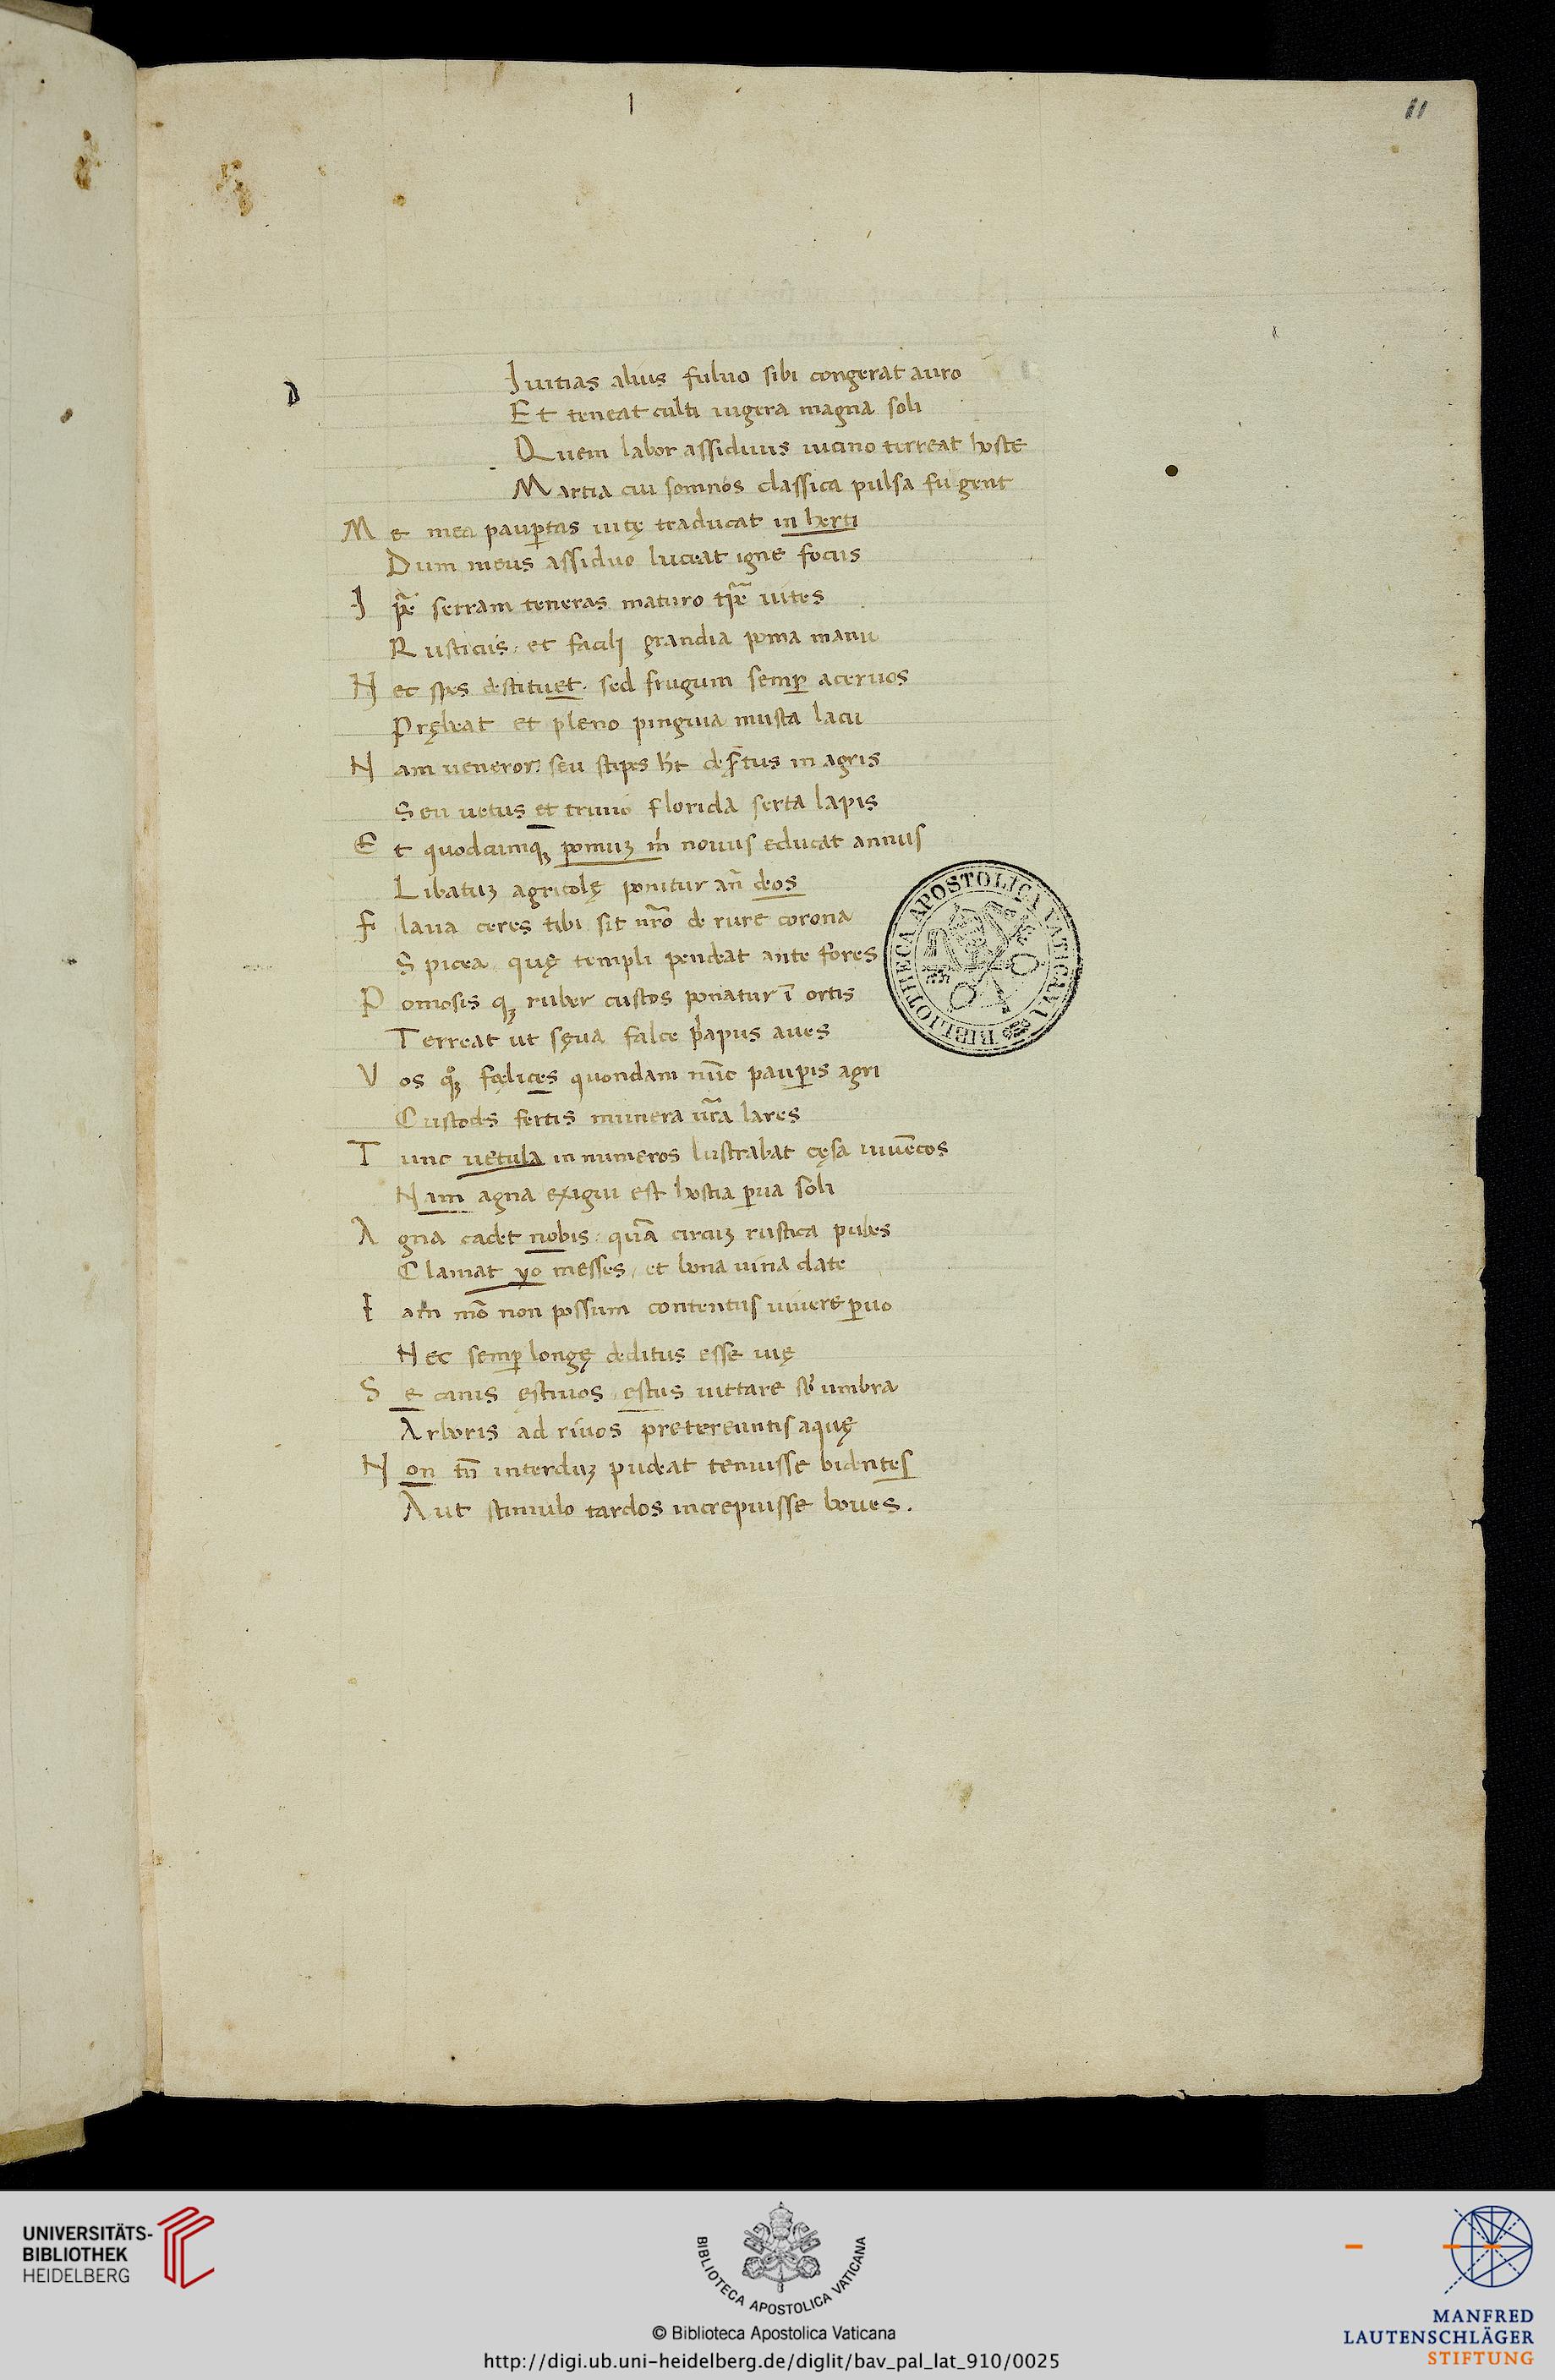 11
D
Iuitias alius fuluo sibi congerat auro
Et teneat culti iugera magna soli
Quem labor assiduus uicino terreat hoste
Martia cui somnos classica pulsa fugent
Me mea paup̄tas uitę traducat in herti
Dum meus assiduo luceat igne focus
Ip̄e serram teneras maturo tp̄re uites
Rusticus, et facili grandia poma manu
Nec spes destituet. sed frugum semp̄ aceruos
Prębeat et pleno pinguia musta lacu
Nam ueneror: seu stipes ht̄ desr̄tus in agris
Seu uetus et triuio florida serta lapis
Et quodcunqꝫ pomuꝫ m̄ nouus educat annus
Libatuꝫ agricolę ponitur an̄ deos
Flaua ceres tibi sit nr̄o de rure corona
Spicea quę templi pendeat ante fores
Pomosisqꝫ ruber custos ponatur ī ortis
Terreat ut sęua falce p̄apus aues
Vos qͦꝫ fęlices quondam nūc paup̄is agri
Custodes fertis munera ur̄a lares
Tunc uetula innumeros lustrabat cęsa iuuēcos
Nam agna exigui est hostia ꝑua soli
Agna cadet nobis, quā circuꝫ rustica pubes
Clamat yo messes, et bona uina date
Iam mō non possum contentus uiuere ꝑuo
Nec semp̄ longę deditus esse uię
Se canis ęstiuos estus uittare sb̄ umbra
Arboris ad riuos pretereuntis aquę
Non tn̄ interduꝫ pudeat tenuisse bidentes
Aut stimulo tardos increpuisse boues.
BIBLIOTHECA APOSTOLICA VATICANA
UNIVERSITÄTS-
BIBLIOTHEK
HEIDELBERG
BIBLIOTECA APOSTOLICA VATICANA
© Biblioteca Apostolica Vaticana
http://digi.ub.uni-heidelberg.de/diglit/bav_pal_lat_910/0025
MANFRED
LAUTENSCHLÄGER
STIFTUNG